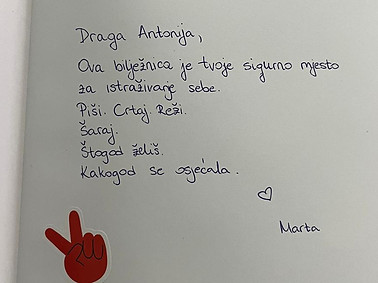 Draga Antonija,
Ova bilježnica je tvoje sigurno mjesto
za istraživanje sebe.
Piši. Crtaj. Reži.
Šaraj.
Štogod želiš.
Kakogod se osjećala.
Marta